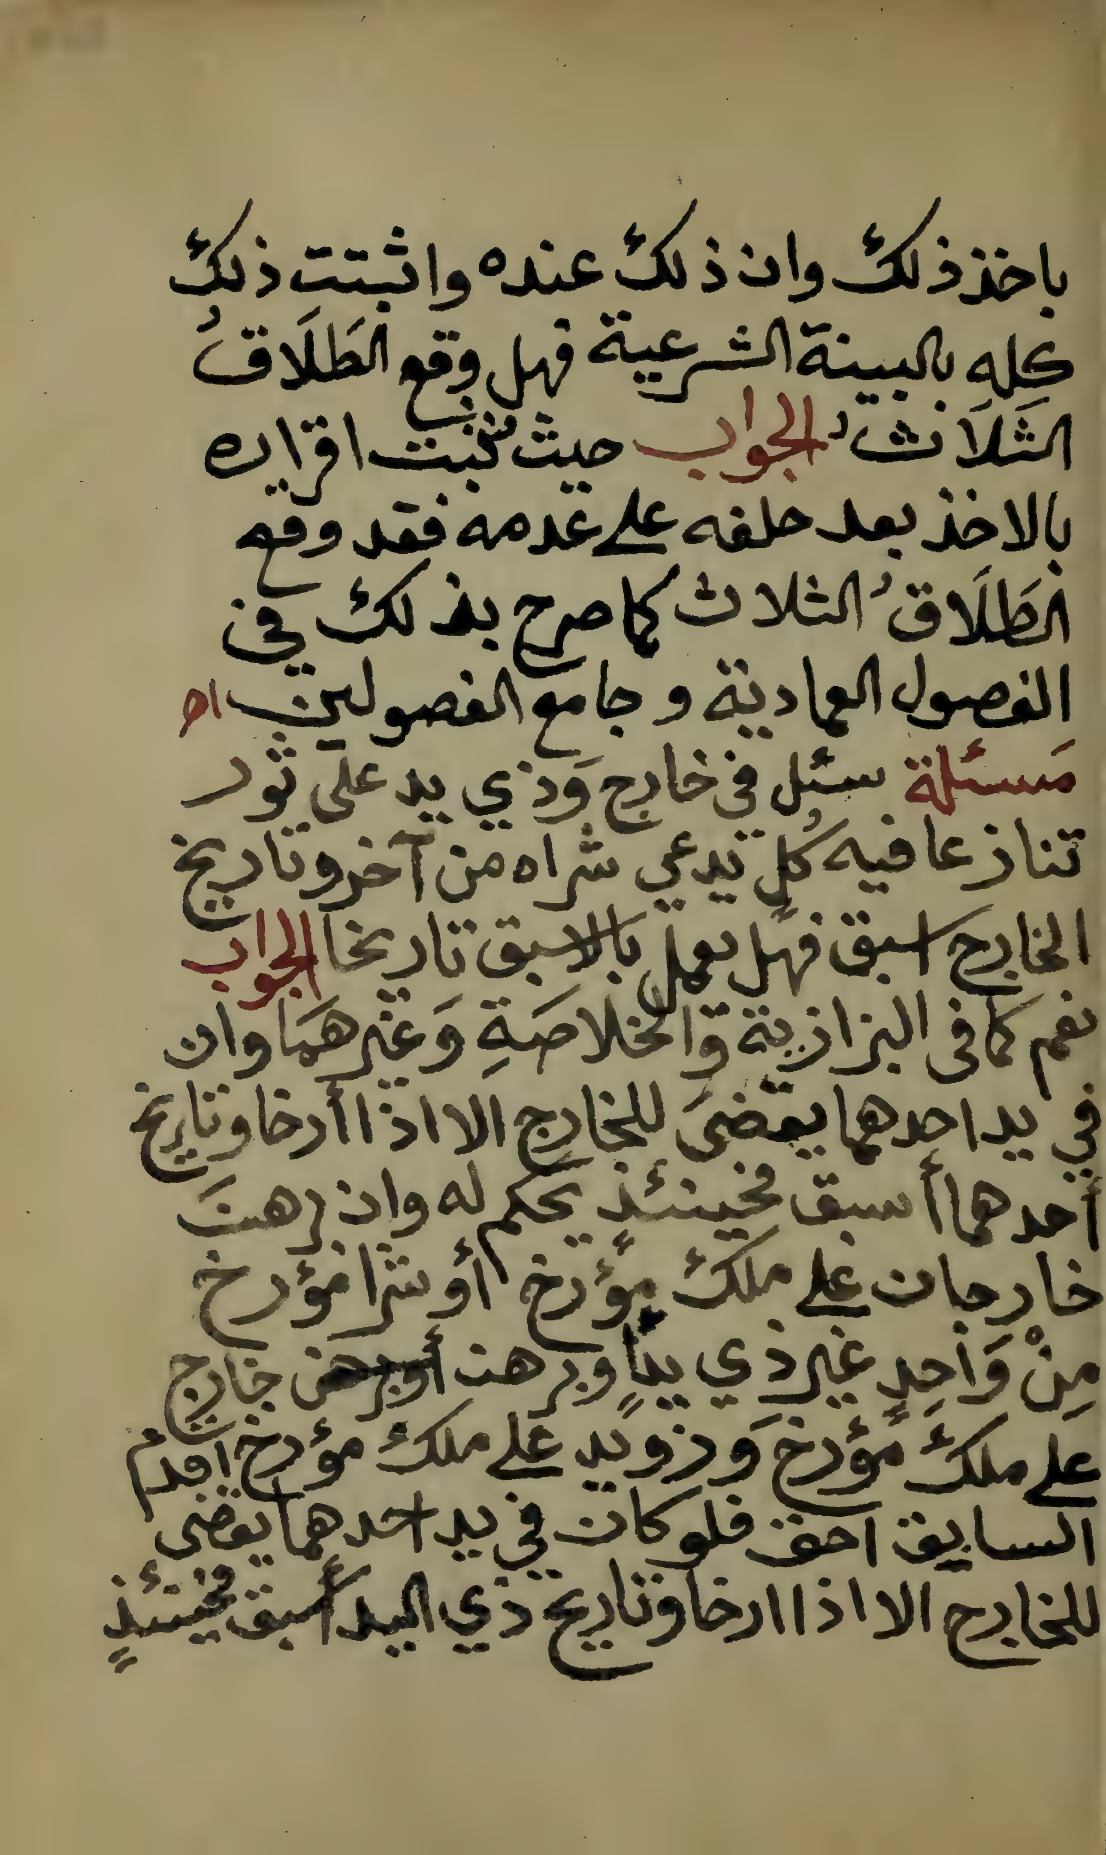 باخذ ذلك وان ذلك عنده واثبتت ذلك
كله بالبينة الشرعية فهل وقع الطَلَاقُ
الثَلَاثُ الجواب حيث ثبت اقراره
بالاخذ بعد حلفه على عدمه فقد وقع
الطَلَاقُ الثلاث كما صرح بذلك في
الفصول العمادية وجامع الفصولين اه
مَسئلة سئل في خارج وَذي يد على ثور
تنازعا فيه كُلٍ يدعي شراه من آخر وتاريخ
الخارج اسبق فهل يعمل بالاسبق تاريخا الجواب
نعم كما فى البزازية وَالخلاصَةِ وَغيرهمَا وان
في يد احدهما يقضىَ للخارج الا اذا أرخا وتاريخ
أحدهما أسبق فحينئذٍ يحكم له وان برهنَ
خارجان على ملك مؤرخ أو شرا مؤرخ
مِنْ وَاحِدٍ غير ذي يدٍ وبرهن أوبرهن خارج
على ملك مؤرخ وَذو يد على ملك مؤرخ اقدم
السابق احق فلو كان في يد احدهما يقضى
للخارج الا اذا ارخا وتاريخ ذي اليد أسبق فحينئذٍ